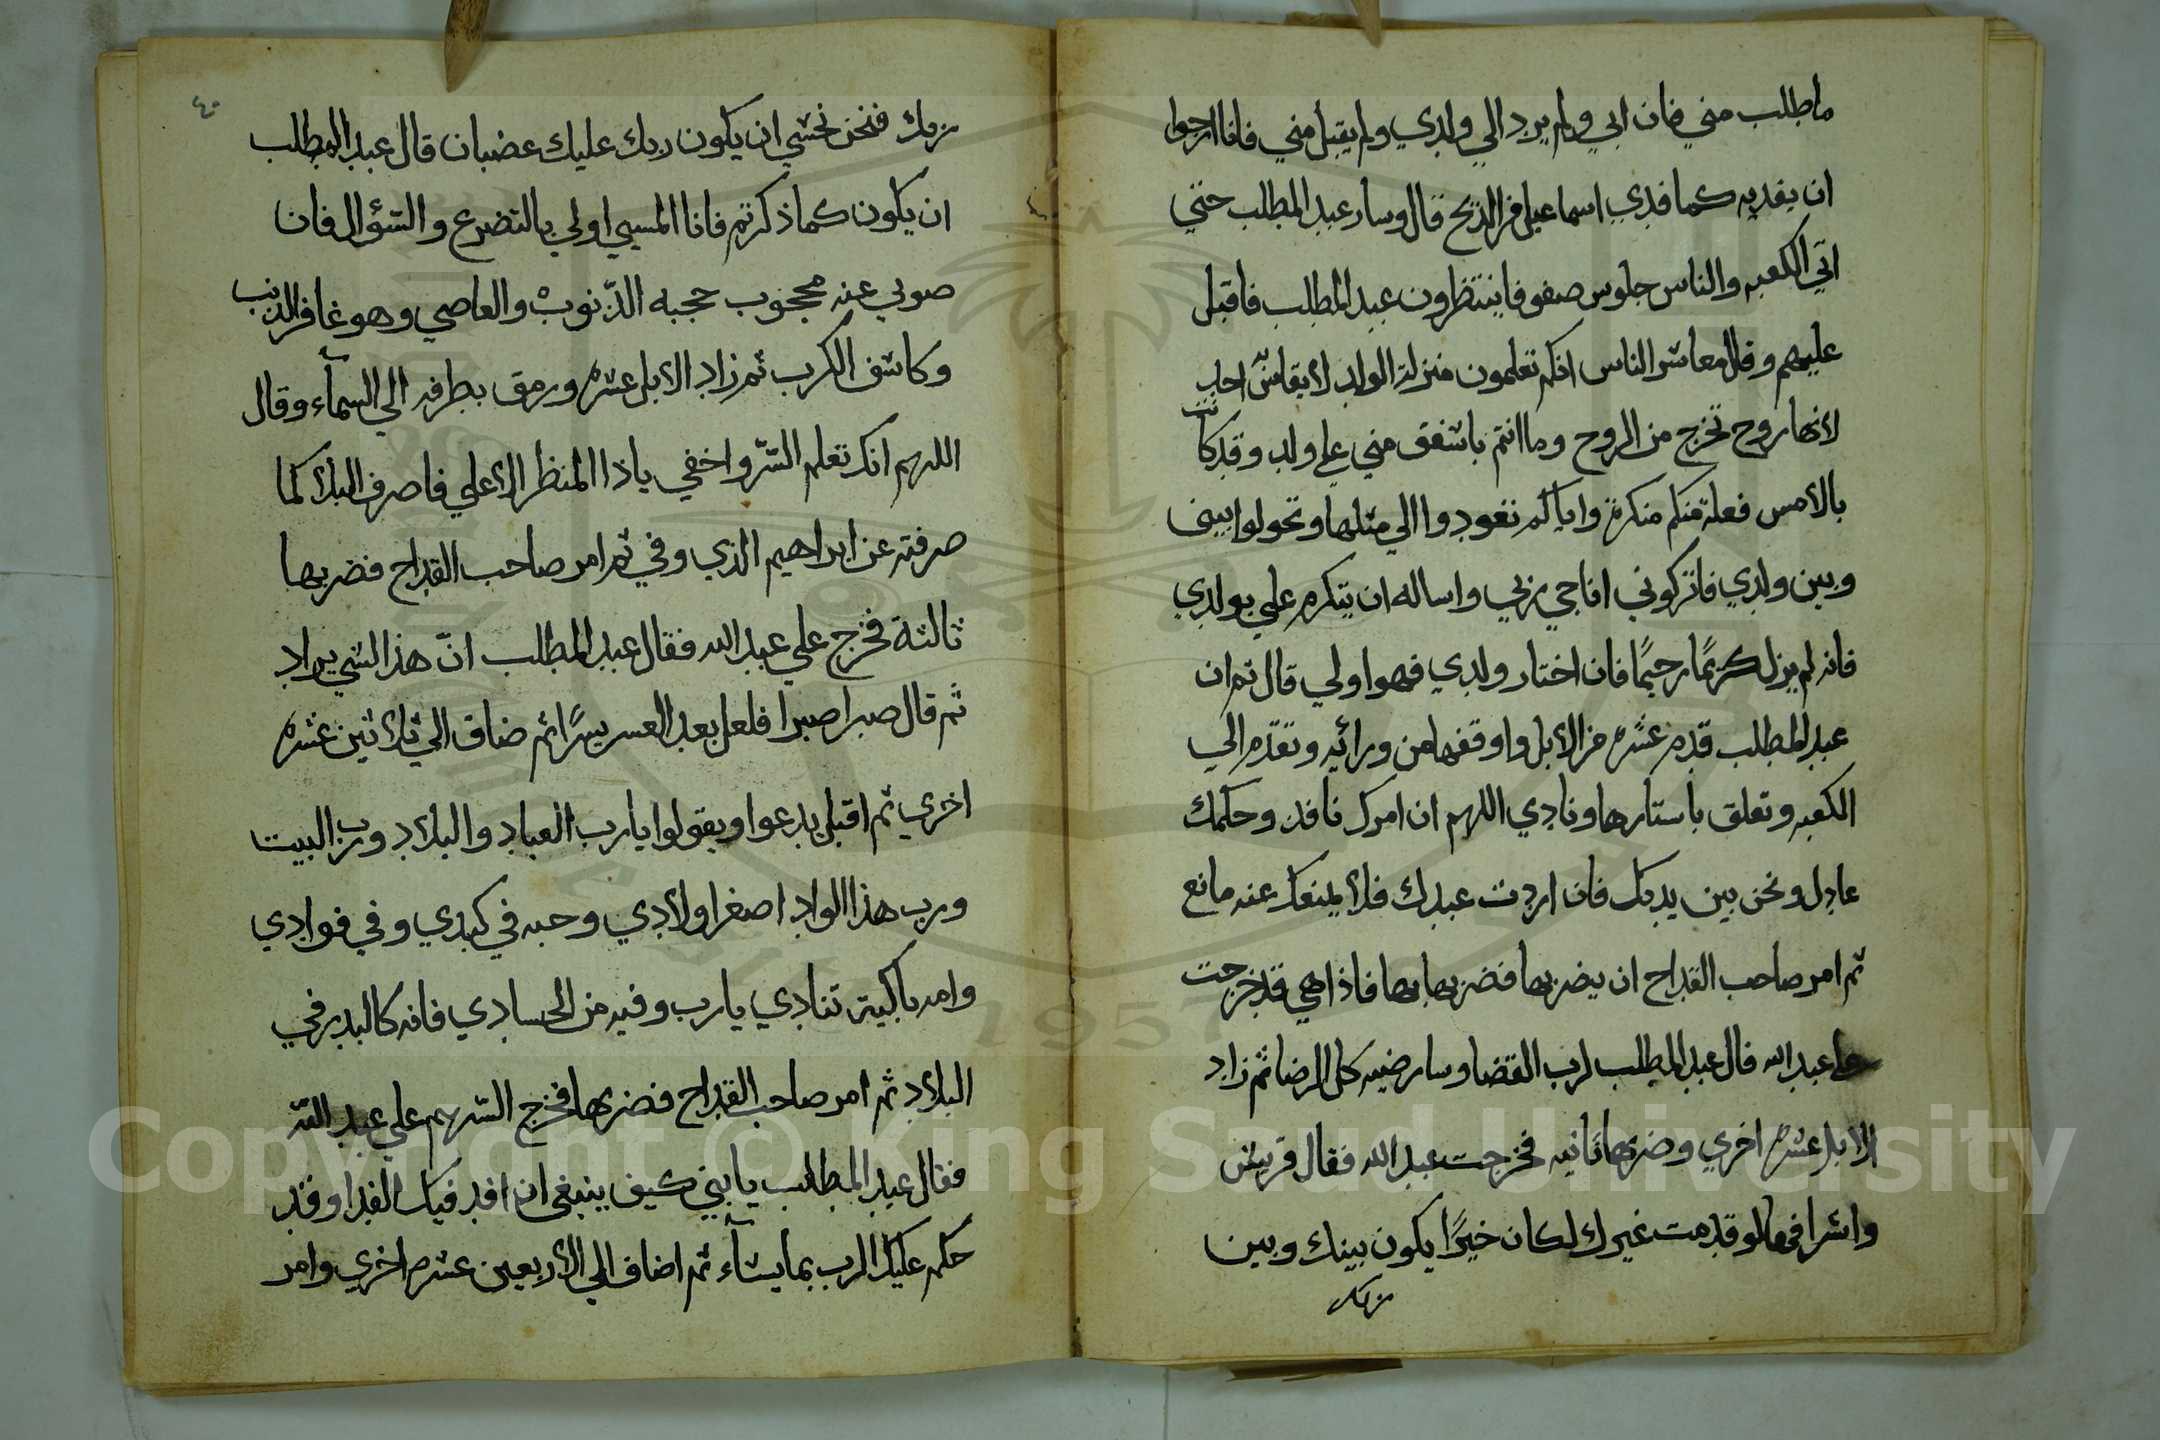 ماطلب مني فان ابي ولم يرد الي ولدي ولم يقبل مني فانا ارجوا
ان يفديه كما فدي اسماعيل من الذبح قال وسار عبد المطلب حتي
اتي الكعبه والناس جلوس صفوفا ينتظرون عبد المطلب فاقبل
عليهم وقال معاشر الناس انكم تعلمون منزلة الولد لا يقاس احد
لانها روح تخرج من الروح وما انتم باشفق مني علي ولد وقد كانت
بالامس فعلة منكم منكرة واياكم تعودوا الي مثلها وتحولوا بيني
وبين ولدي فاتركوني اناجي ربي واساله ان يتكرم علي بولدي
فانه لم يزل كريمًا رحيمًا فان اختار ولدي فهو اولي قال ثم ان
عبد المطلب قدم عشرة من الابل واوقفها من ورائه وتقدم الي
الكعبه وتعلق باستارها ونادي اللهم ان امرك نافذ وحكمك
عادل ونحن بين يديك فان اردت عبدك فلا يمنعك عنه مانع
ثم امر صاحب القداح ان يضربها فضربها بها فاذا هي قد خرجت
علي عبد الله قال عبد المطلب لرب القضا وسا رضيه كل الرضا ثم زاد
الابل عشرة اخري وضربها ثانيه فخرجت عبد الله فقال قريش
واشرافها لو قدمت غيرك لكان خيرًا يكون بينك وبين
ربك
٤٠
ربك فنحن نخشي ان يكون ربك عليك غضبان قال عبد المطلب
ان يكون كما ذكرتم فانا المسيي اولي بالتضرع والسؤال فان
صوتي عنه محجوب حجبه الذنوب والعاصي وهو غافر الذنب
وكاشف الكرب ثم زاد الابل عشره ورمق بطرفه الي السمآء وقال
اللهم انك تعلم السرّ واخفي ياذا المنظر الاعلي فاصرف البلا كما
صرفته عن ابراهيم الذي وفي ثم امر صاحب القداح فضربها
ثالثة فخرج علي عبد الله فقال عبد المطلب انّ هذا الشي يراد
ثم قال صبرا صبرا فلعل بعد العسر يسرًا ثم ضاف الي ثلاثين عشره
اخري ثم اقبل يدعوا ويقولوا يارب العباد والبلاد ورب البيت
ورب هذا الواد اصغر اولادي وحبه في كبدي وفي فوادي
وامه باكية تنادي يارب وقيه من الحسادي فانه كالبدر في
البلاد ثم امر صاحب القداح فضربها فخرج السّهم علي عبد اللّه
فقال عبد المطلب يابني كيف ينبغي ان افد فيك الفدا وقد
حكم عليك الرب بما يشآء ثم اضاف الي الاربعين عشرة اخري وامر
Copyright © King Saud University
1957